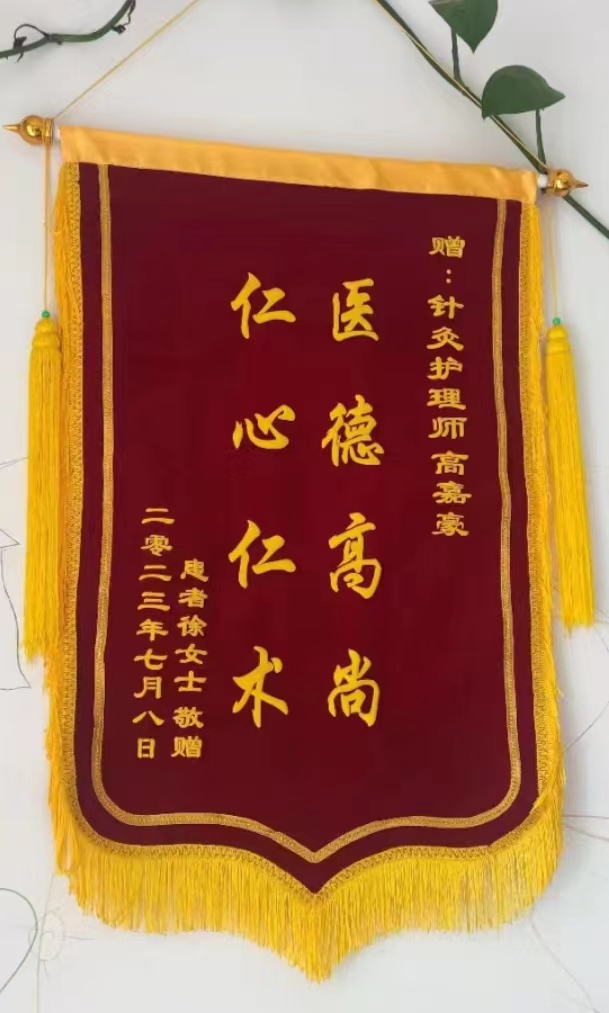 赠：针灸护理师高嘉豪
医德高尚
仁心仁术
患者徐女士 敬赠
二零二三年七月八日